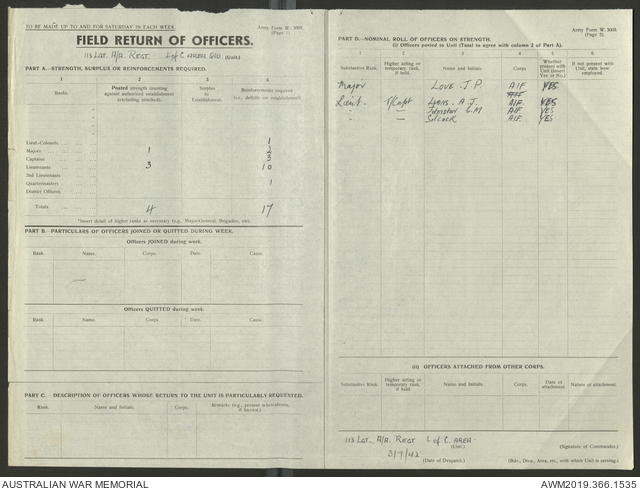 TO BE MADE UP TO AND FOR SATURDAY IN EACH WEEK.
Army Form W. 3008.
(Page 1)
FIELD RETURN OF OFFICERS.
113 Lgt. A/A. Regt. L of C. AREA
(Unit.)
PART A.—STRENGTH, SURPLUS OR REINFORCEMENTS REQUIRED.
1 2 3 4
Ranks. Posted strength counting against authorized establishment (excluding attached). Surplus to Establishment. Reinforcements required (i.e., deficits on establishment)
Lieut.-Colonels 1
Majors 1 2
Captains 3
Lieutenants 3 10
2nd Lieutenants
Quartermasters 1
District Officers
Totals 4 17
*Insert detail of higher ranks as necessary (e.g., Major-General, Brigadier, etc).
PART B.—PARTICULARS OF OFFICERS JOINED OR QUITTED DURING WEEK.
Officers JOINED during week.
Rank. Name. Corps. Date. Cause.
—
Officers QUITTED during week.
Rank. Name. Corps. Date. Cause.
PART C.—DESCRIPTION OF OFFICERS WHOSE RETURN TO THE UNIT IS PARTICULARLY REQUESTED.
Rank. Name and Initials. Corps. Remarks (e.g., present whereabouts, if known.)
Army Form W. 3008.
(Page 2).
PART D.—NOMINAL ROLL OF OFFICERS ON STRENGTH.
(i) Officers posted to Unit (Total to agree with column 2 of Part A).
1 2 3 4 5 6
Substantive Rank. Higher acting or temporary rank, if held. Name and Initials. Corps Whether present with Unit (Insert Yes or No.) If not present with Unit, state how employed.
Major — LOVE. J.P. AIF YES
Lieut. T/Capt Lyons. A.J. AIF YES
" — Johnston L.M AIF YES
" — Silcock AIF YES
(ii) OFFICERS ATTACHED FROM OTHER CORPS.
Substantive Rank. Higher acting or temporary rank, if held. Name and Initials. Corps. Date of attachment Nature of attachment.
113 Lgt. A/A. Regt L of C. AREA
(Unit.) (Signature of Commander.)
3/7/42
(Date of Despatch.) (Bde., Divn., Area, etc., with which Unit is serving.)
AUSTRALIAN WAR MEMORIAL AWM2019.366.1535